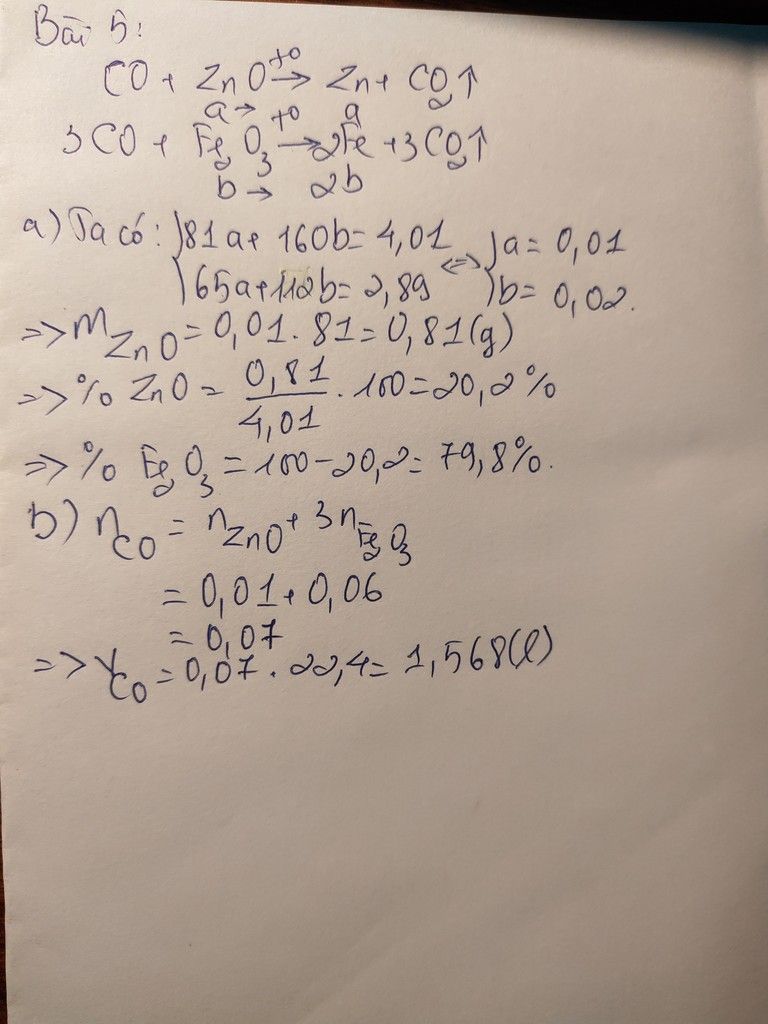 Bài 5:
CO + ZnO t⁰→ Zn + CO₂↑
a → a
3CO + Fe₂O₃ t⁰→ 2Fe + 3CO₂↑
b → 2b
a) Ta có: { 81a + 160b = 4,01 <=> { a = 0,01
{ 65a + 112b = 2,89 { b = 0,02.
=> m ZnO = 0,01 . 81 = 0,81(g)
=> % ZnO = 0,81/4,01 . 100 = 20,2%
=> % Fe₂O₃ = 100 - 20,2 = 79,8%.
b) n CO = n ZnO + 3n Fe₂O₃
= 0,01 + 0,06
= 0,07
=> V CO = 0,07 . 22,4 = 1,568(l)